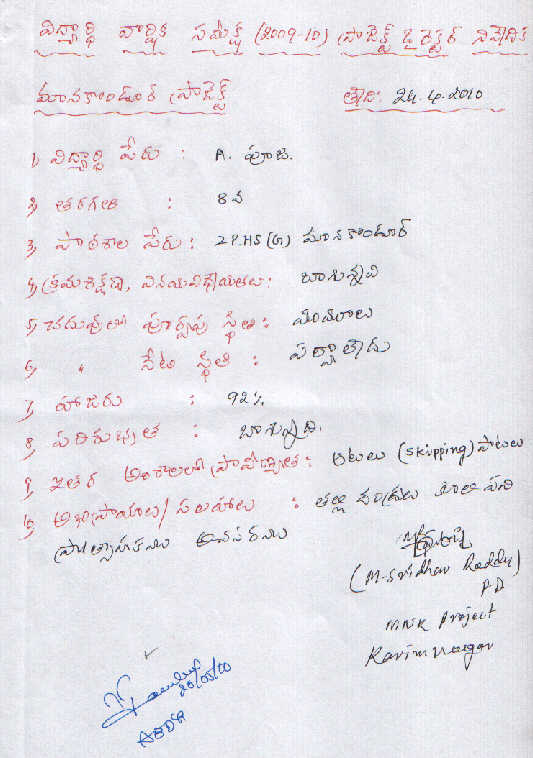 విద్యార్థి వార్షిక సమీక్ష (2009-10) ప్రాజెక్ట్ డైరెక్టర్ నివేదిక
మానకొండూర్ ప్రాజెక్ట్ తేది: 24.4.2010
1, విద్యార్థి పేరు : A. పూజ.
2, తరగతి : 8వ
3, పాఠశాల పేరు : Z P.HS (G) మానకొండూర్
4, క్రమశిక్షణ, వినయవిధేయతలు : బాగున్నవి
5, చదువులో పూర్వపు స్థితి :
6, " నేటి స్థితి : పర్వాలేదు
7, హాజరు : 92%
8, పరిశుభ్రత : బాగున్నది.
9, ఇతర అంశాలలో ప్రావీణ్యత : ఆటలు (skipping) పాటలు
10, అభిప్రాయాలు/సలహాలు : తల్లి
ప్రోత్సాహకము అవసరము
(M. Sridhar Reddy)
PD
MNK Project
Karimnagar
ABDSR